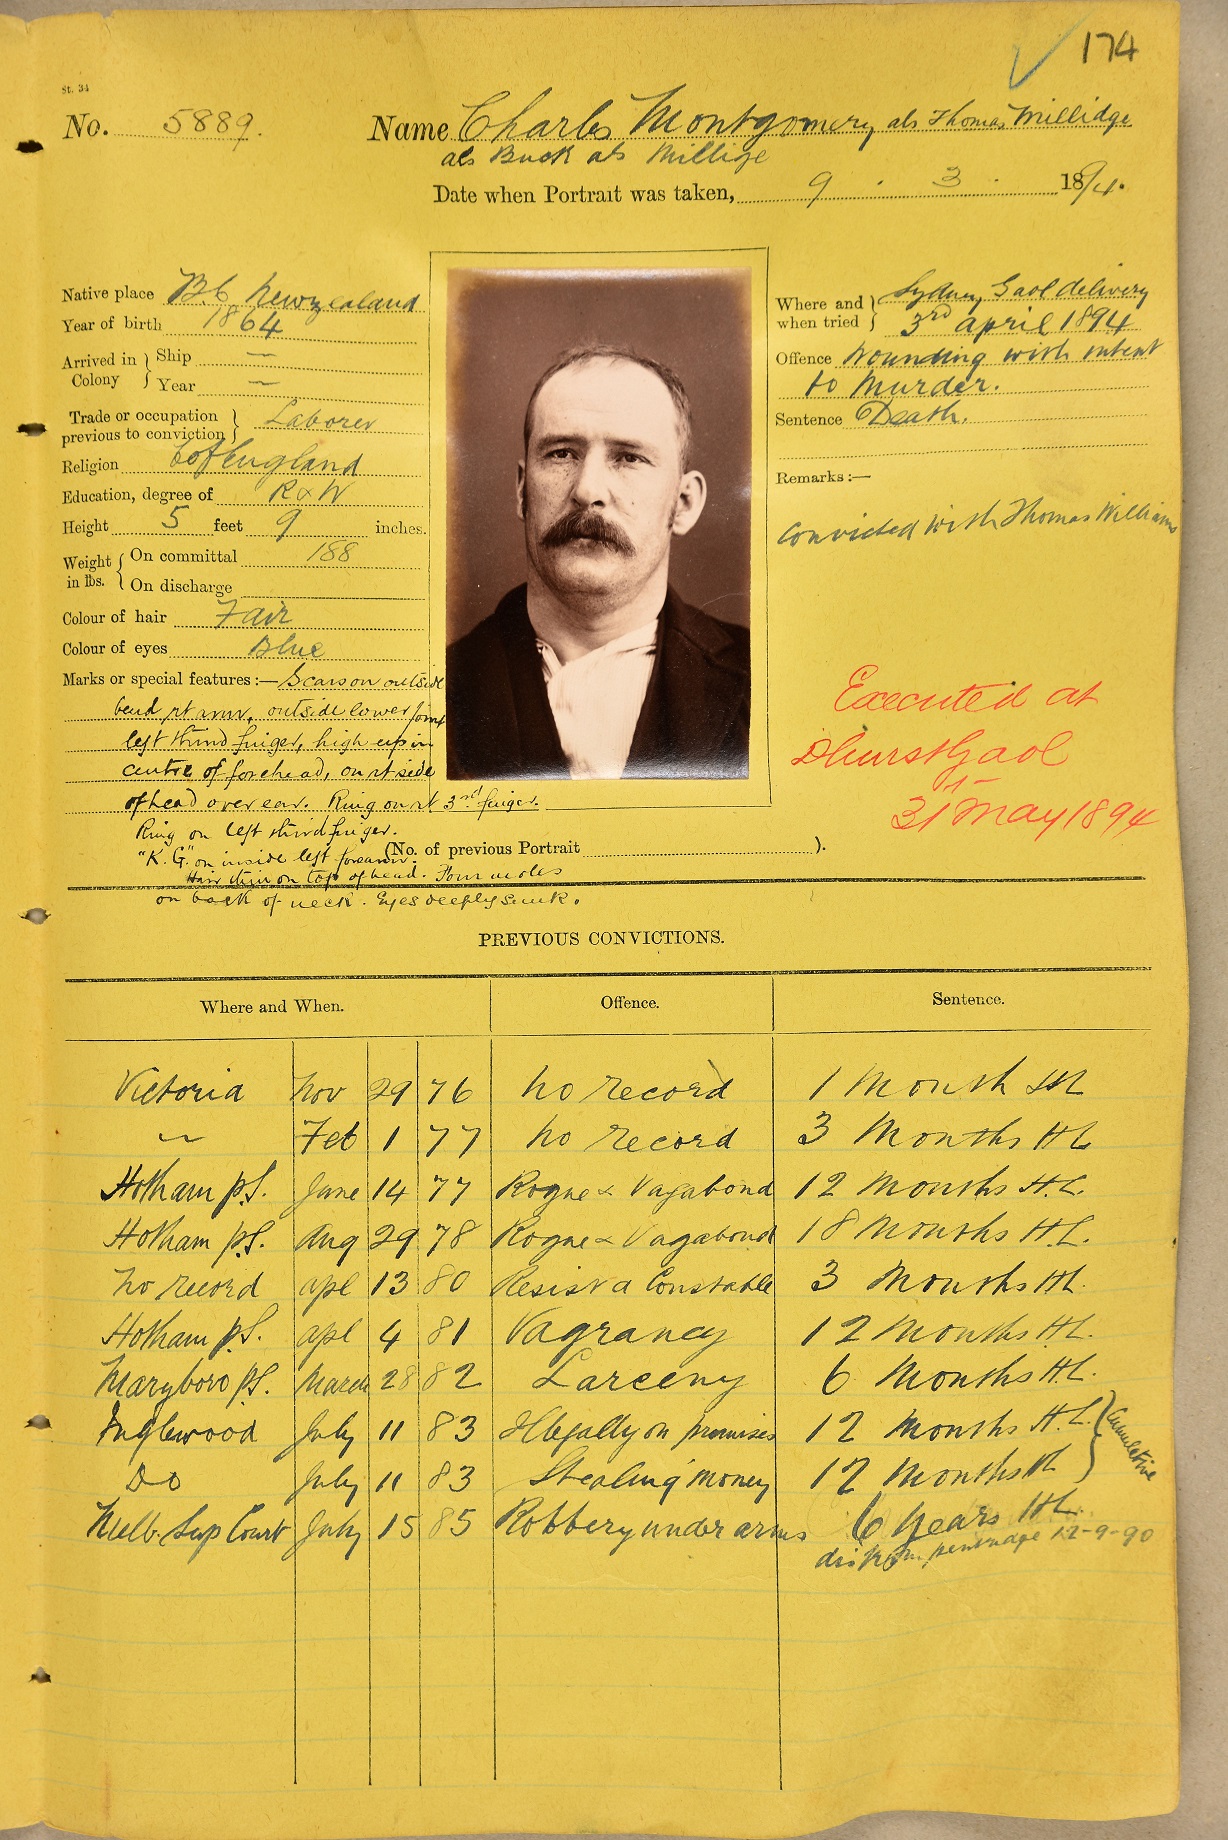 174
St. 34
No. 5889. Name Charles Montgomery als Thomas Millidge
als Buck als Millige
Date when Portrait was taken, 9 . 3 . 1894.
Native place B.C Newzealand
Year of birth 1864
Arrived in Colony } Ship —
Year —
Trade or occupation previous to conviction } Laborer
Religion C of England
Education, degree of R & W
Height 5 feet 9 inches.
Weight in lbs. { On committal 188
On discharge
Colour of hair Fair
Colour of eyes Blue
Marks or special features:— Scars on outside
bend rt arm, outside lower joint
left third finger, high up in
centre of forehead, on rt side
of head over ear. Ring on rt 3rd finger.
Ring on left third finger.
"K. G." on inside left forearm.
(No. of previous Portrait ).
Hair thin on top of head. Four moles
on back of neck. Eyes deeply sunk.
Where and when tried } Sydney Gaol delivery
3rd April 1894
Offence Wounding with intent
to Murder.
Sentence Death.
Remarks:—
Convicted with Thomas Williams
Executed at
Dhurst Gaol
31st May 1894
PREVIOUS CONVICTIONS.
Where and When. Offence. Sentence.
Victoria Nov 29 76 No record 1 Month HL
" Feb 1 77 No record 3 Months HL
Hotham P.S. June 14 77 Rogue & Vagabond 12 Months H.L.
Hotham P.S. Aug 29 78 Rogue & Vagabond 18 Months H.L.
No record Apl 13 80 Resist a Constable 3 Months HL.
Hotham P.S. Apl 4 81 Vagrancy 12 Months HL.
Maryboro P.S. March 28 82 Larceny 6 Months HL.
Inglewood July 11 83 Illegally on premises 12 Months H.L. } Cumulative
Do July 11 83 Stealing money 12 Months Hl
Melb. Sup Court July 15 85 Robbery under arms 6 Years HL.
12-9-90